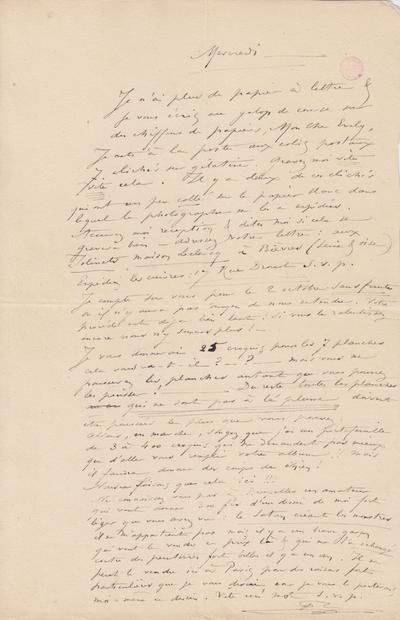 Mercredi
Je n'ai plus de papier à lettre &
je vous écris au galop de course sur
des chiffons de papiers, Mon cher Evely,
Je mets à la poste aux colis postaux
7 clichés sur gélatine. Gravez moi vite
vite cela. Il y a deux de ces clichés
qui ont un peu collé sur le papier blanc dans
lequel le photographe me les a expédiés.
Accusez moi réception & dites moi si cela se
gravera bien — adressez votre lettre : aux
maison Leclercq à Bièvres (Seine & Oise)
Expédiez les cuivres : 19 Rue Drouot S.v.p.
Je compte sur vous pour le 2 octobre sans faute
ou il n'y aura pas moyen de nous entendre. Votre
procédé est déjà bien lent ! Si vous le ralentissez
encore nous n'y sommes plus ! —
Je vous donnerai 25 croquis pour les 7 planches
cela vous va-t-il ? — ? — mais vous me
pousserez les planches autant que vous pouvez
les pousser ! — Du reste toutes les planches
qui ne sont pas à la plume doivent
être poussées le plus que vous pouvez.
Allons, en marche, songez que j'ai un portefeuille
de 3 à 400 croquis qui ne demandent pas mieux
que d'aller vous remplir votre album !! mais
il faudra donner des coups de !
Ne connaissez vous pas à Bruxelles un amateur
qui voudrait donner 200 frs d'un dessin de moi fort
que vous avez vu : le Satan créant les monstres
il ne m'appartient pas mais il y a un brave garçon
qui veut le vendre ce prix là & qui me l'a échangé
contre des peintures fort belles il y a un an. Il ne
peut le vendre ici à Paris pour des raisons fort
particulières que je vous dirai car je vous le porterais
moi-même ce dessin. Vite un mot S.v.p.